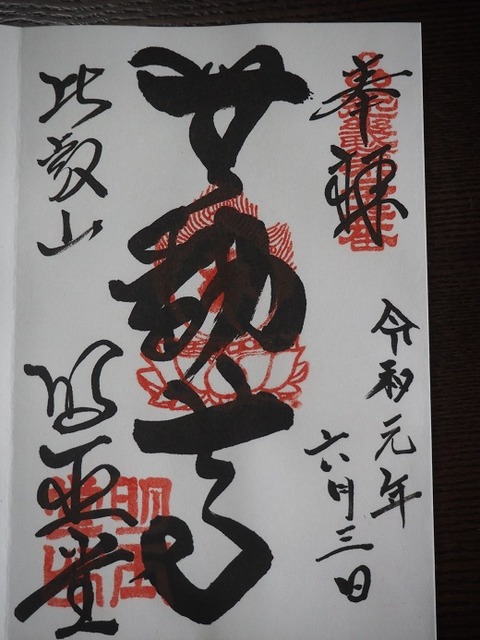 奉拝
令和元年
六月三日
無動尊
比叡山
明王堂
明王
堂印